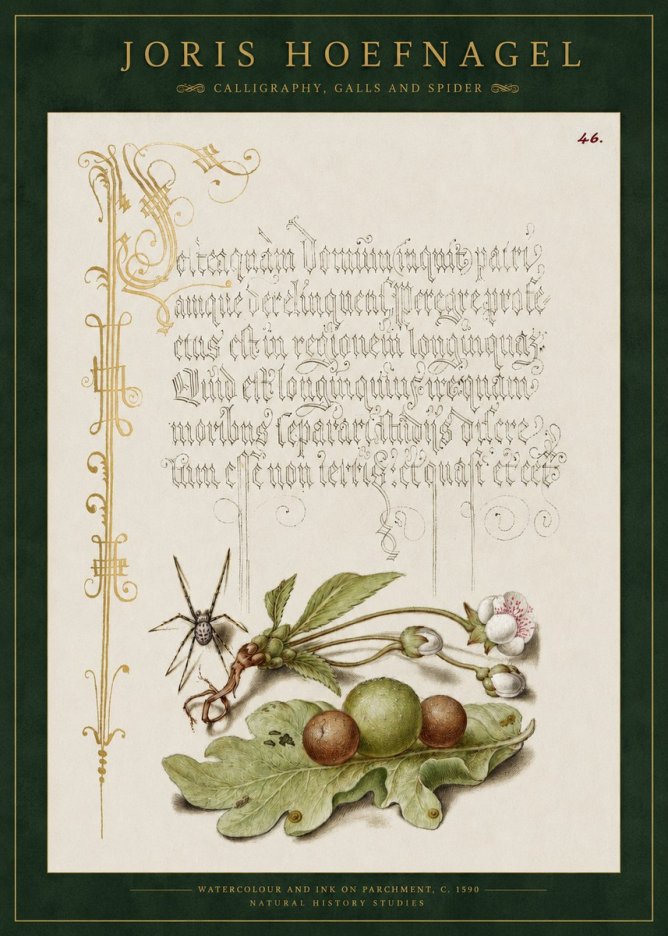 JORIS HOEFNAGEL
CALLIGRAPHY, GALLS AND SPIDER
46.
Dominum (inquit) patri,
amque derelinquens, Peregre profe-
ctus est in regionem longinquaz.
Quid est longinquius, nequam
moribus separari, studijs discre
tum esse non terris: et quasi
WATERCOLOUR AND INK ON PARCHMENT, C. 1590
NATURAL HISTORY STUDIES